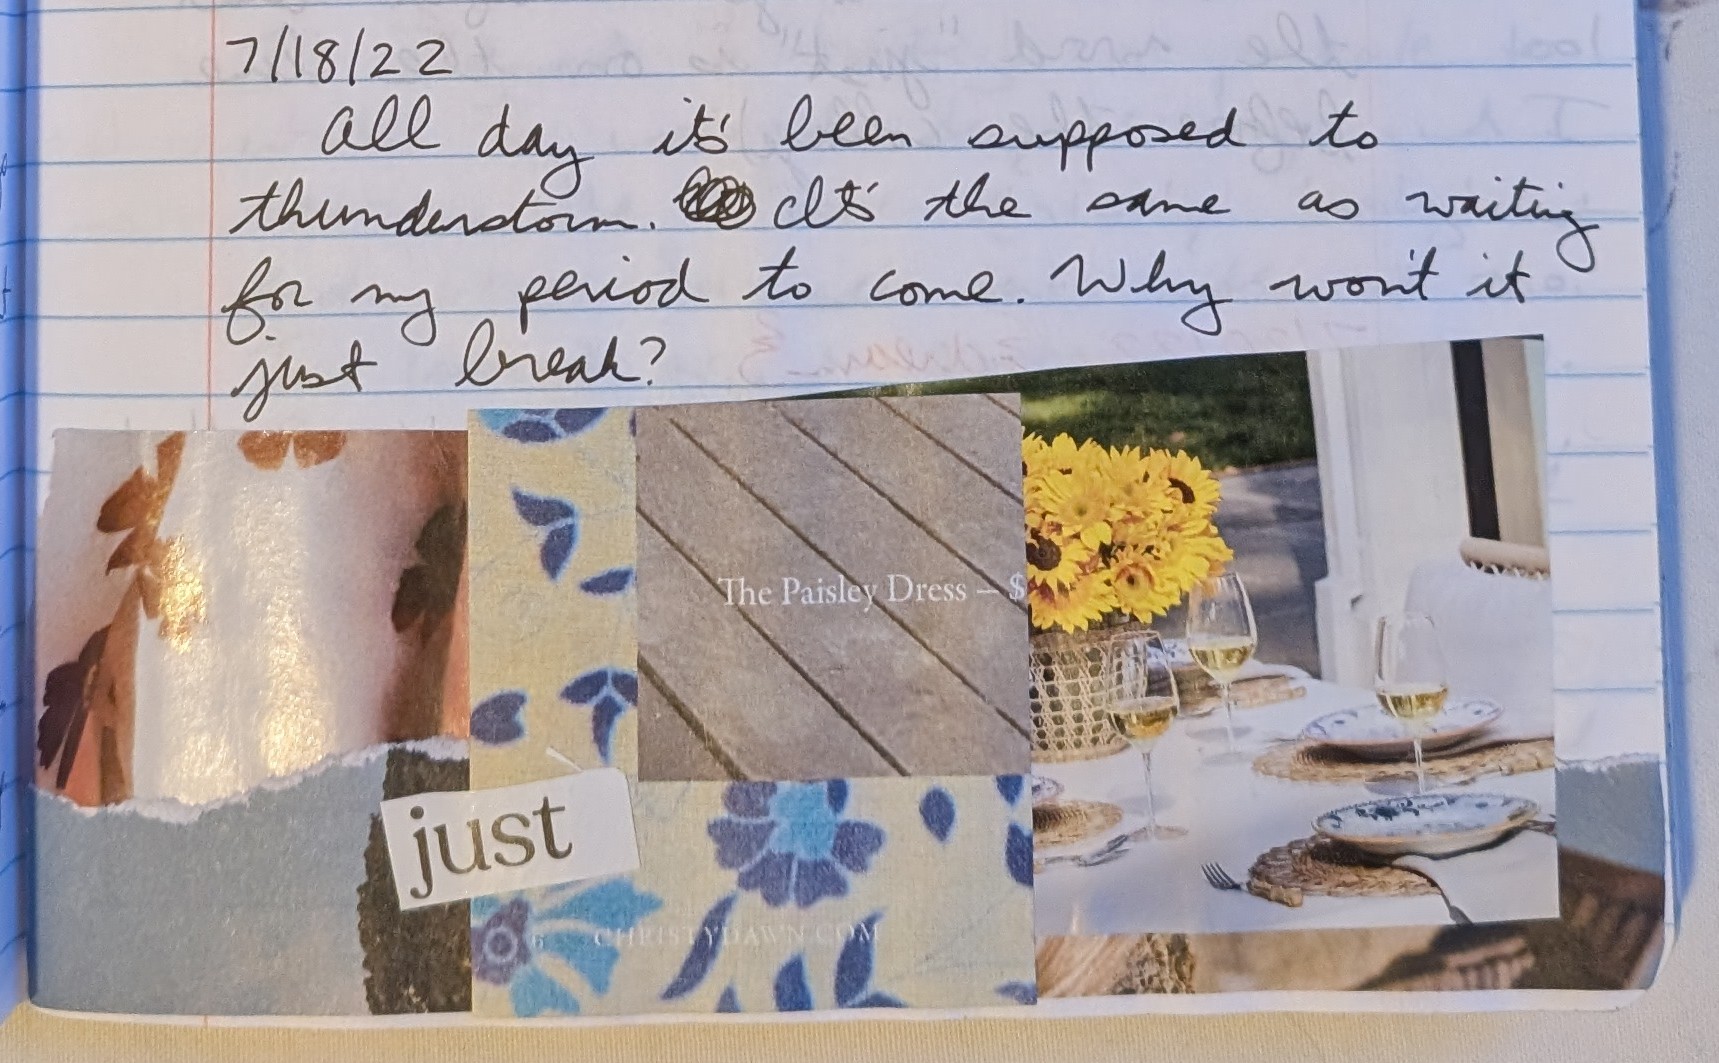 7/18/22
All day it's been supposed to
thunderstorm. It's the same as waiting
for my period to come. Why won't it
just break?
The Paisley Dress – $
just
6 CHRISTYDAWN.COM